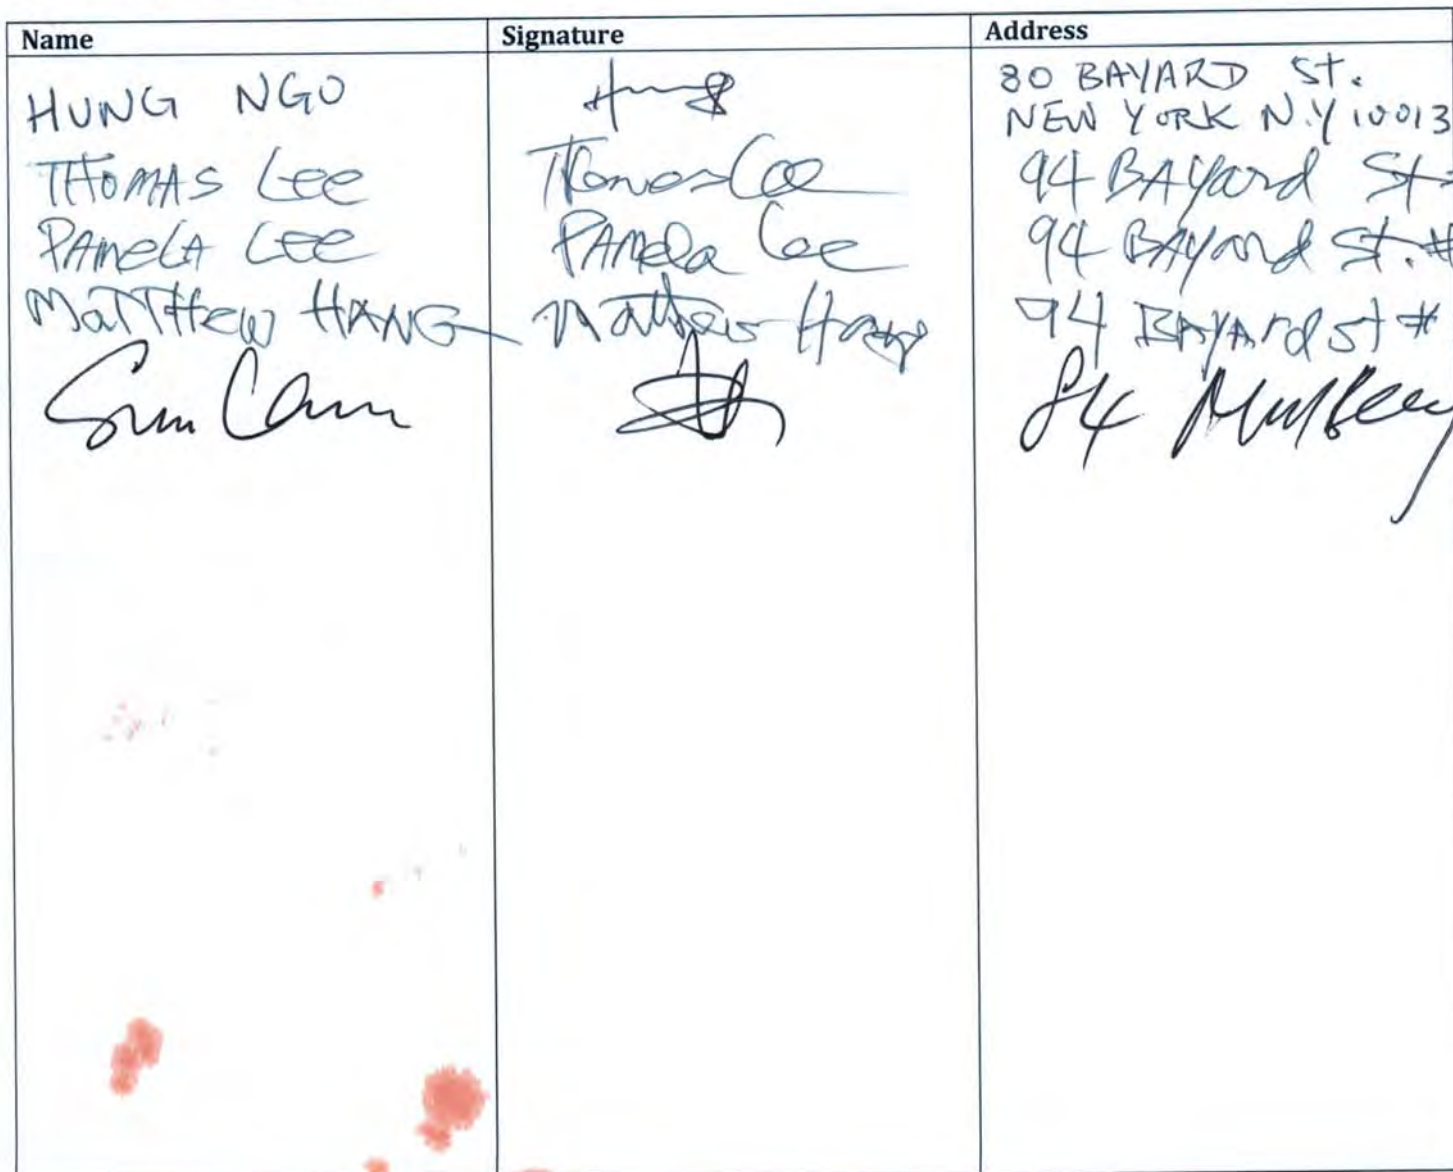 Name Signature Address
80 BAYARD St.
HUNG NGO Hung NEW YORK N.Y 10013
THOMAS Lee Thomas Lee 94 BAYard St
PAMELA Lee PAMela Lee 94 BAYard St. #
MaTTHew HANG Matthew Hang 94 BAYard St #
84 Mulberry